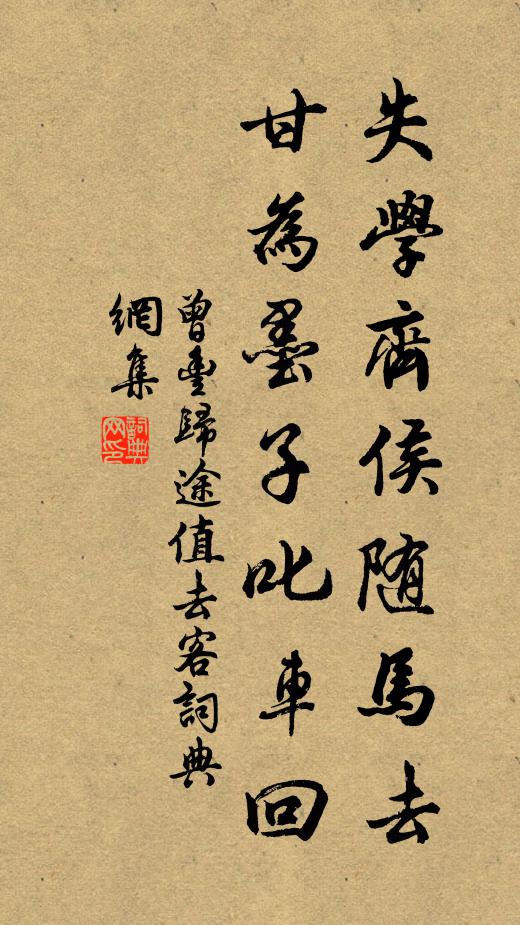 失學齊侯随馬去
甘為墨子叱車回
曾豊歸途值去客詞典
網集
詞典
网印